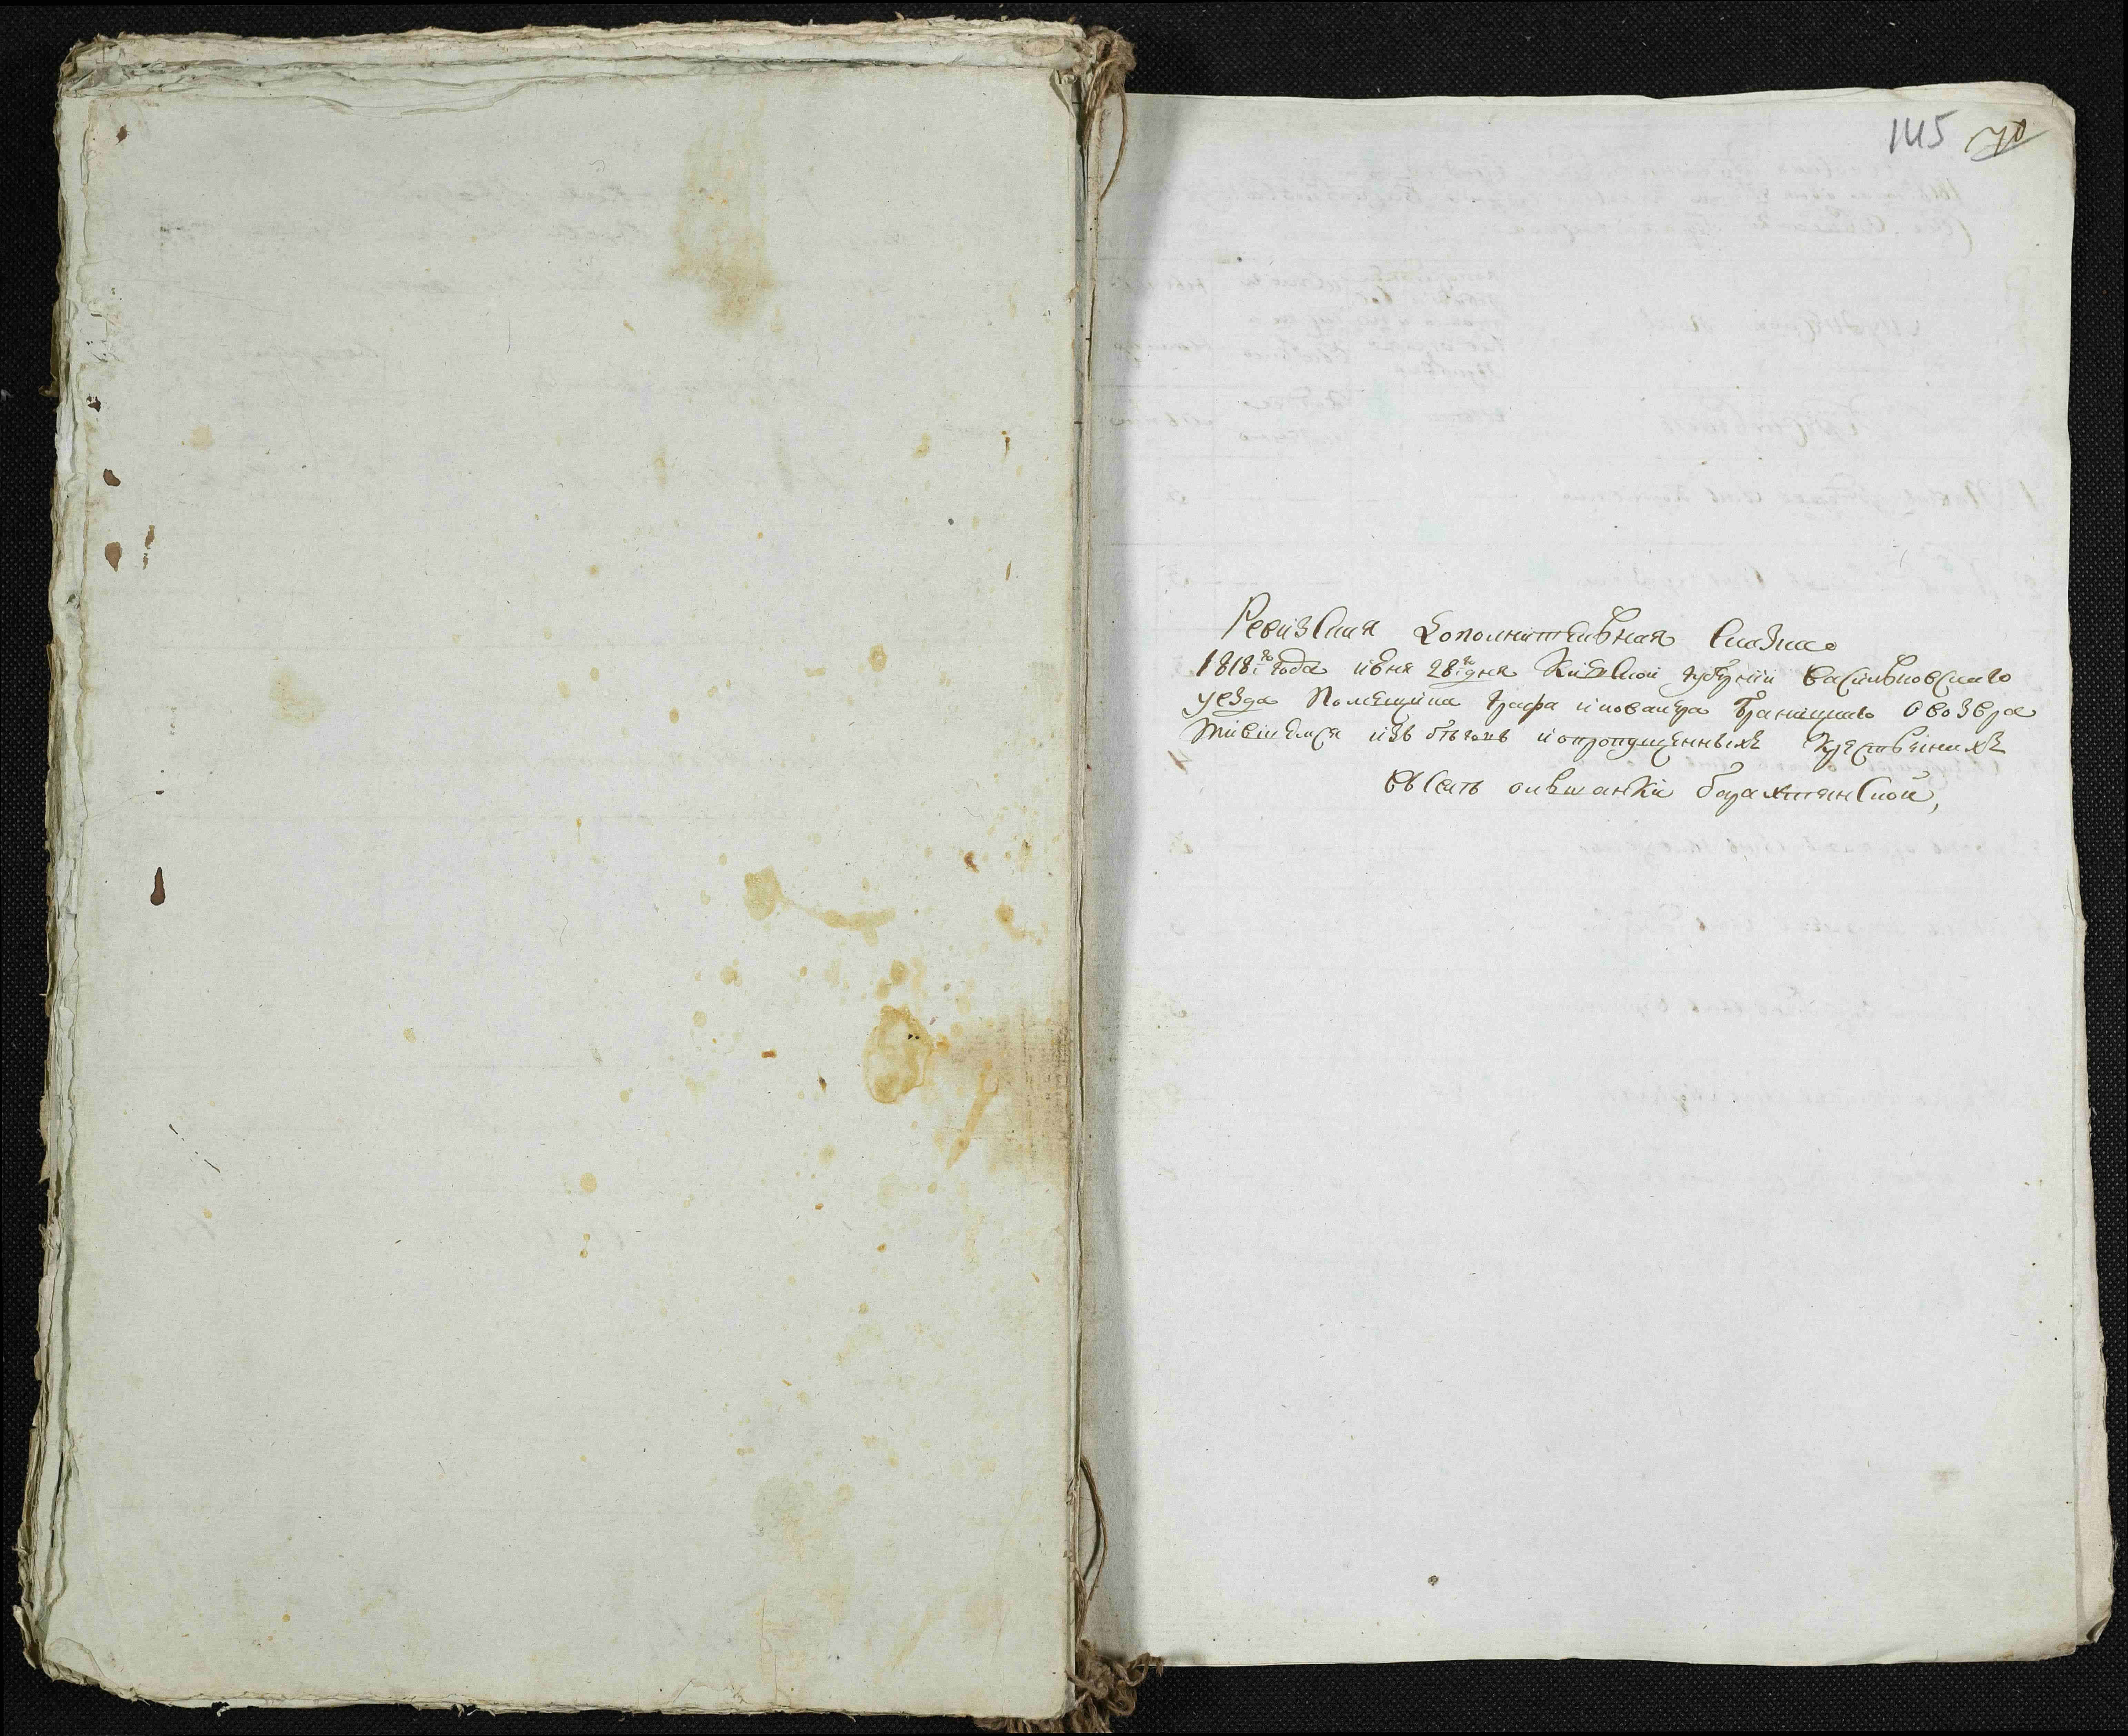 145 70
Ревизская дополнительная сказка
1818го года июня 28го дня Киевской губернїи васильковскаго
уезда Помещика графа и кавалера браницкаго о возвра
тившихся изъ бѣговъ и опропущенныхъ крестьянахъ
въ селѣ ольшанки барахтянской,